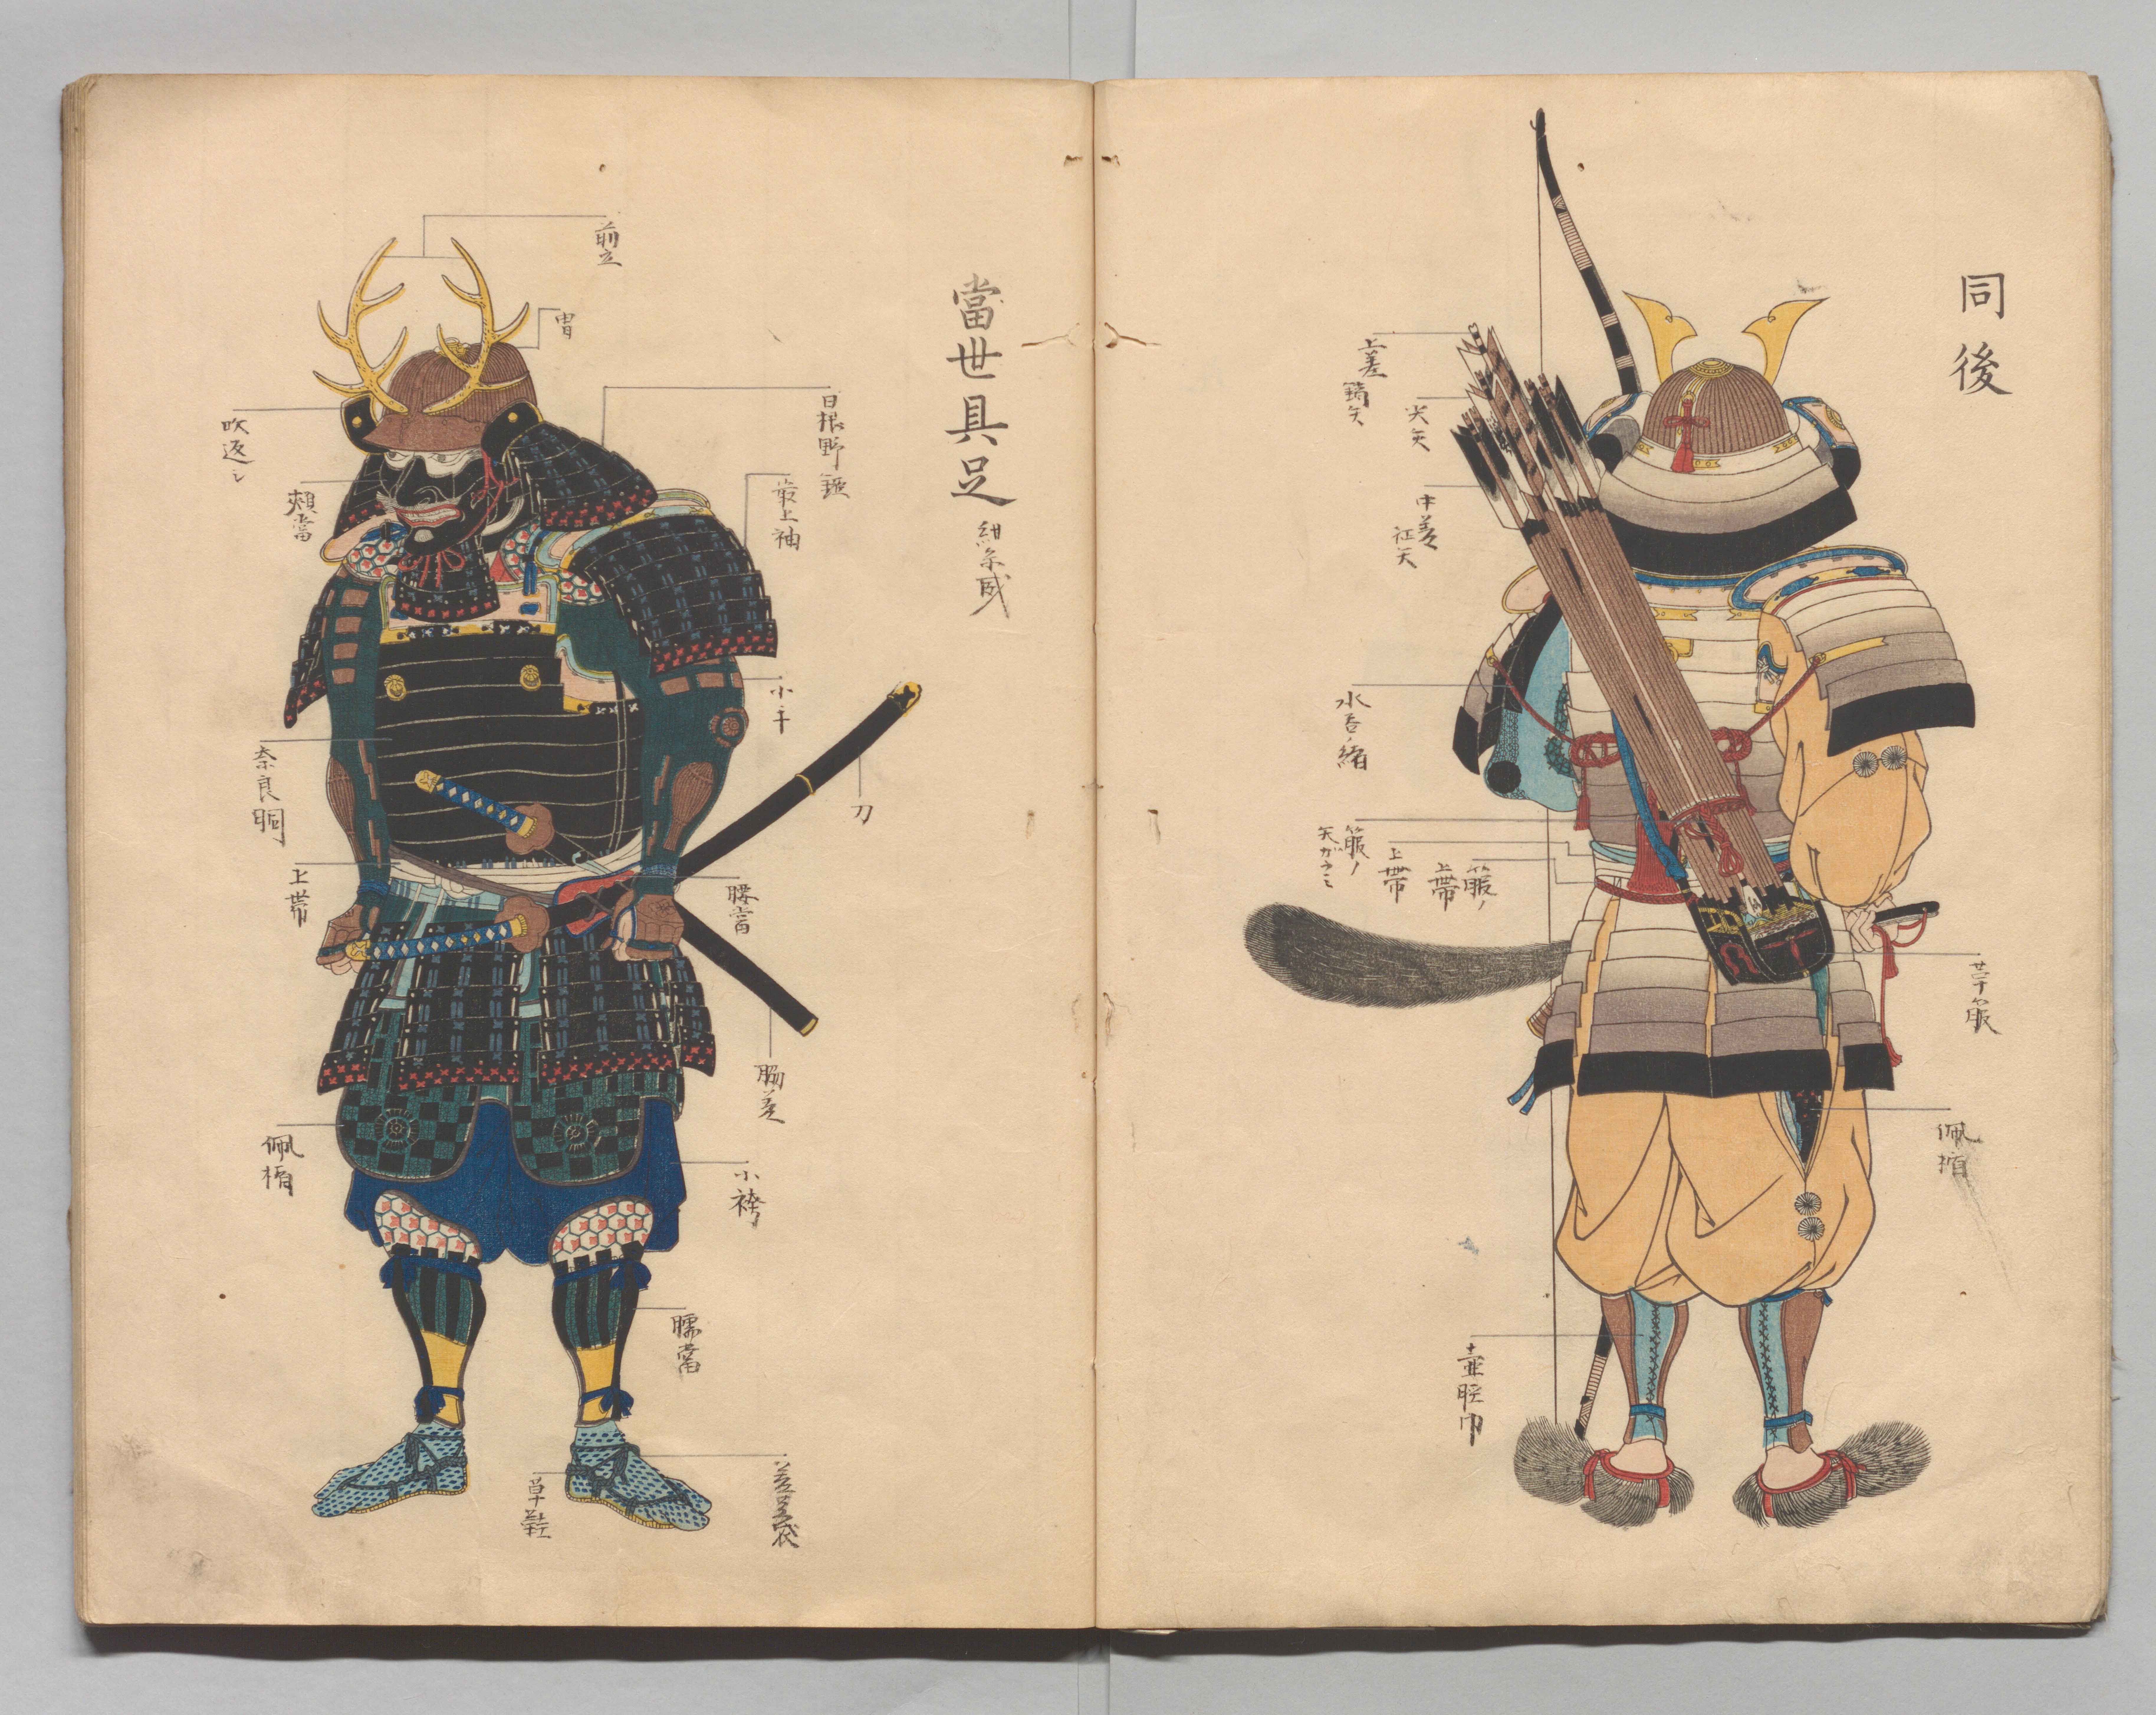 同後
上差
鏑矢
尖矢
中差
征矢
水呑ノ緒
箙ノ
矢がらミ
上帯
箙ノ
上帯
廿箙
佩楯
壷脛巾
當世具足
紺糸威
前立
冑
日根野
最上袖
吹返シ
頬當
小手
刀
奈良胴
上帯
腰當
脇差
佩楯
小袴
臑當
草鞋